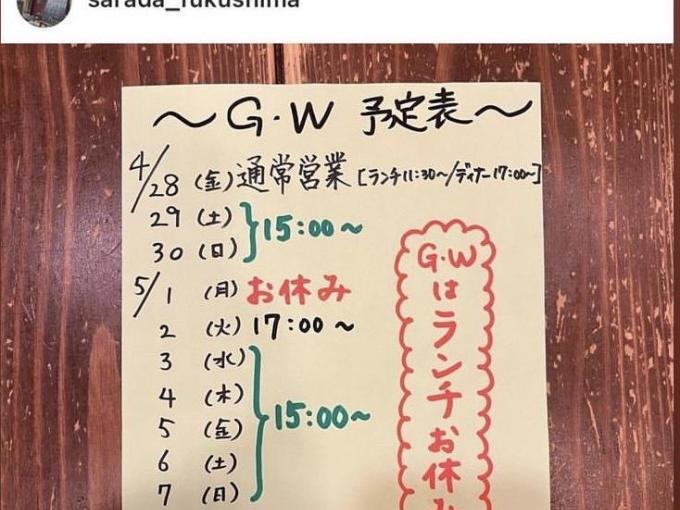 sarada_fukushima
～G・W 予定表～
4/28 (金) 通常営業 [ランチ11:30～/ディナー17:00～]
29 (土)
30 (日)
15:00～
5/1 (月) お休み
2 (火) 17:00～
3 (水)
4 (木)
5 (金)
6 (土)
7 (日)
15:00～
G・Wはランチお休み